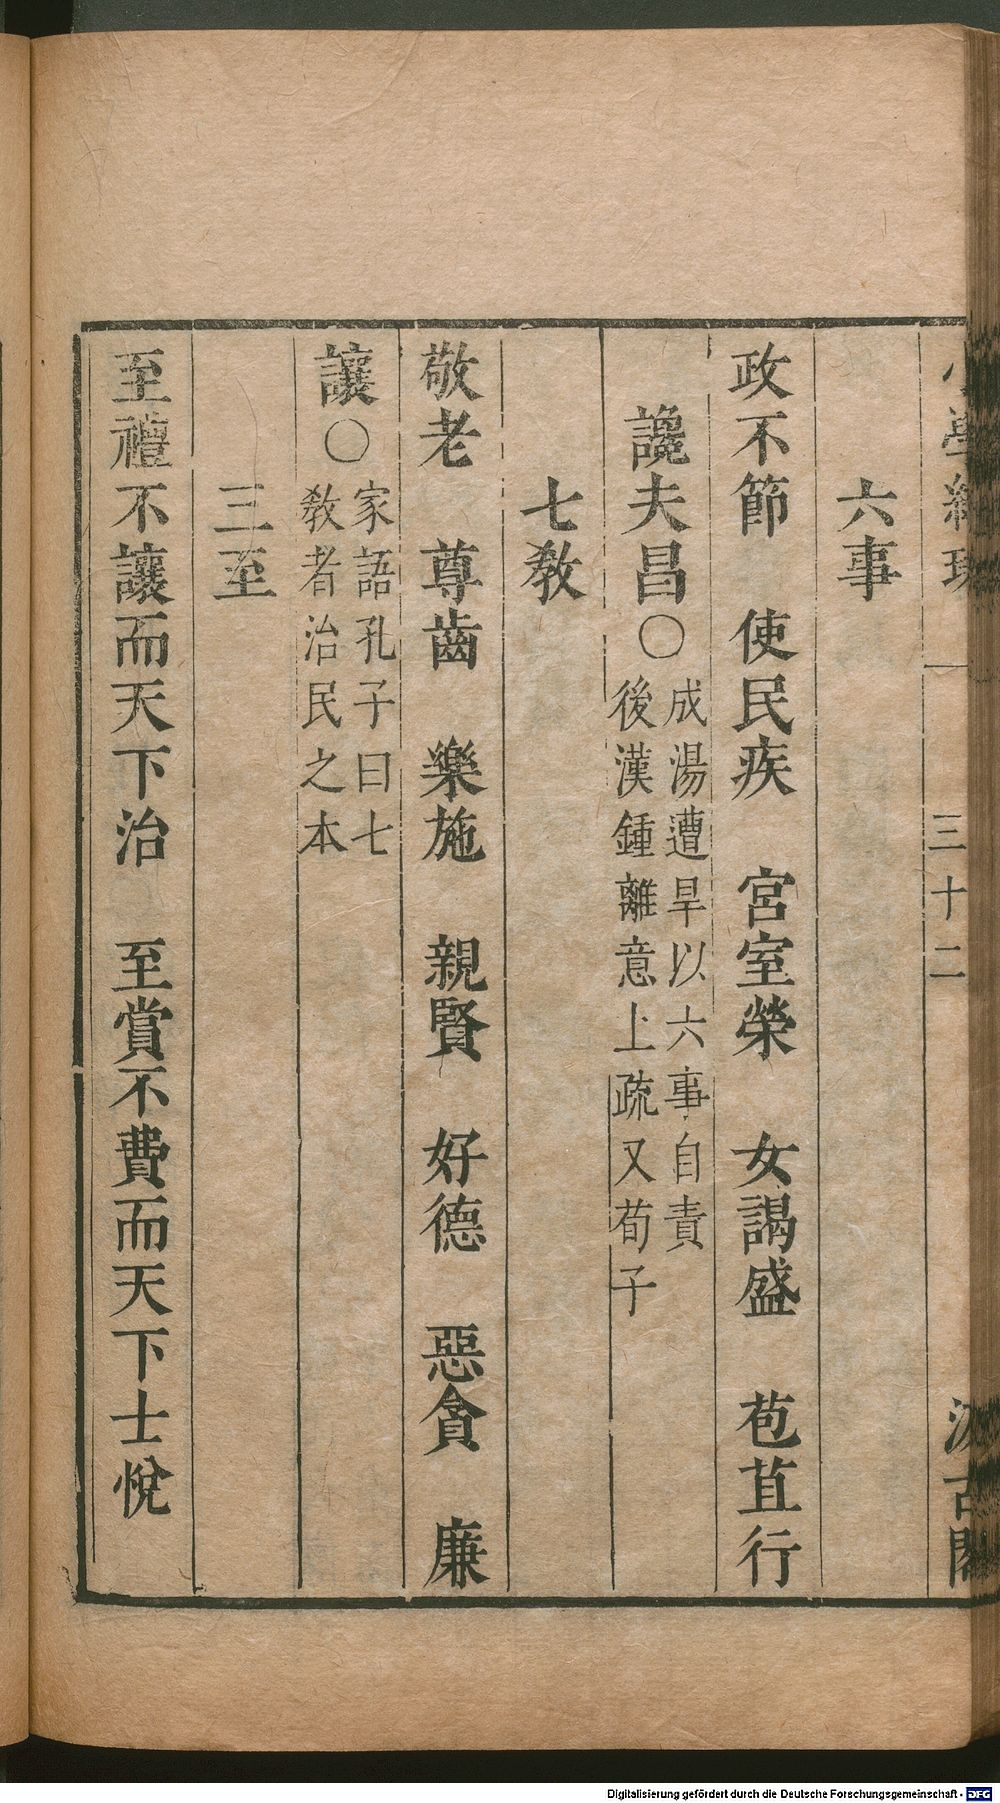 小學紺珠 三十二 汲古閣
六事
政不節 使民疾 宮室榮 女謁盛 苞苴行
讒夫昌〇成湯遭旱以六事自責
後漢鍾離意上疏又荀子
七敎
敬老 尊齒 樂施 親賢 好德 惡貪 廉
讓〇家語孔子曰七
敎者治民之本
三至
至禮不讓而天下治 至賞不費而天下士悅
Digitalisierung gefördert durch die Deutsche Forschungsgemeinschaft - DFG